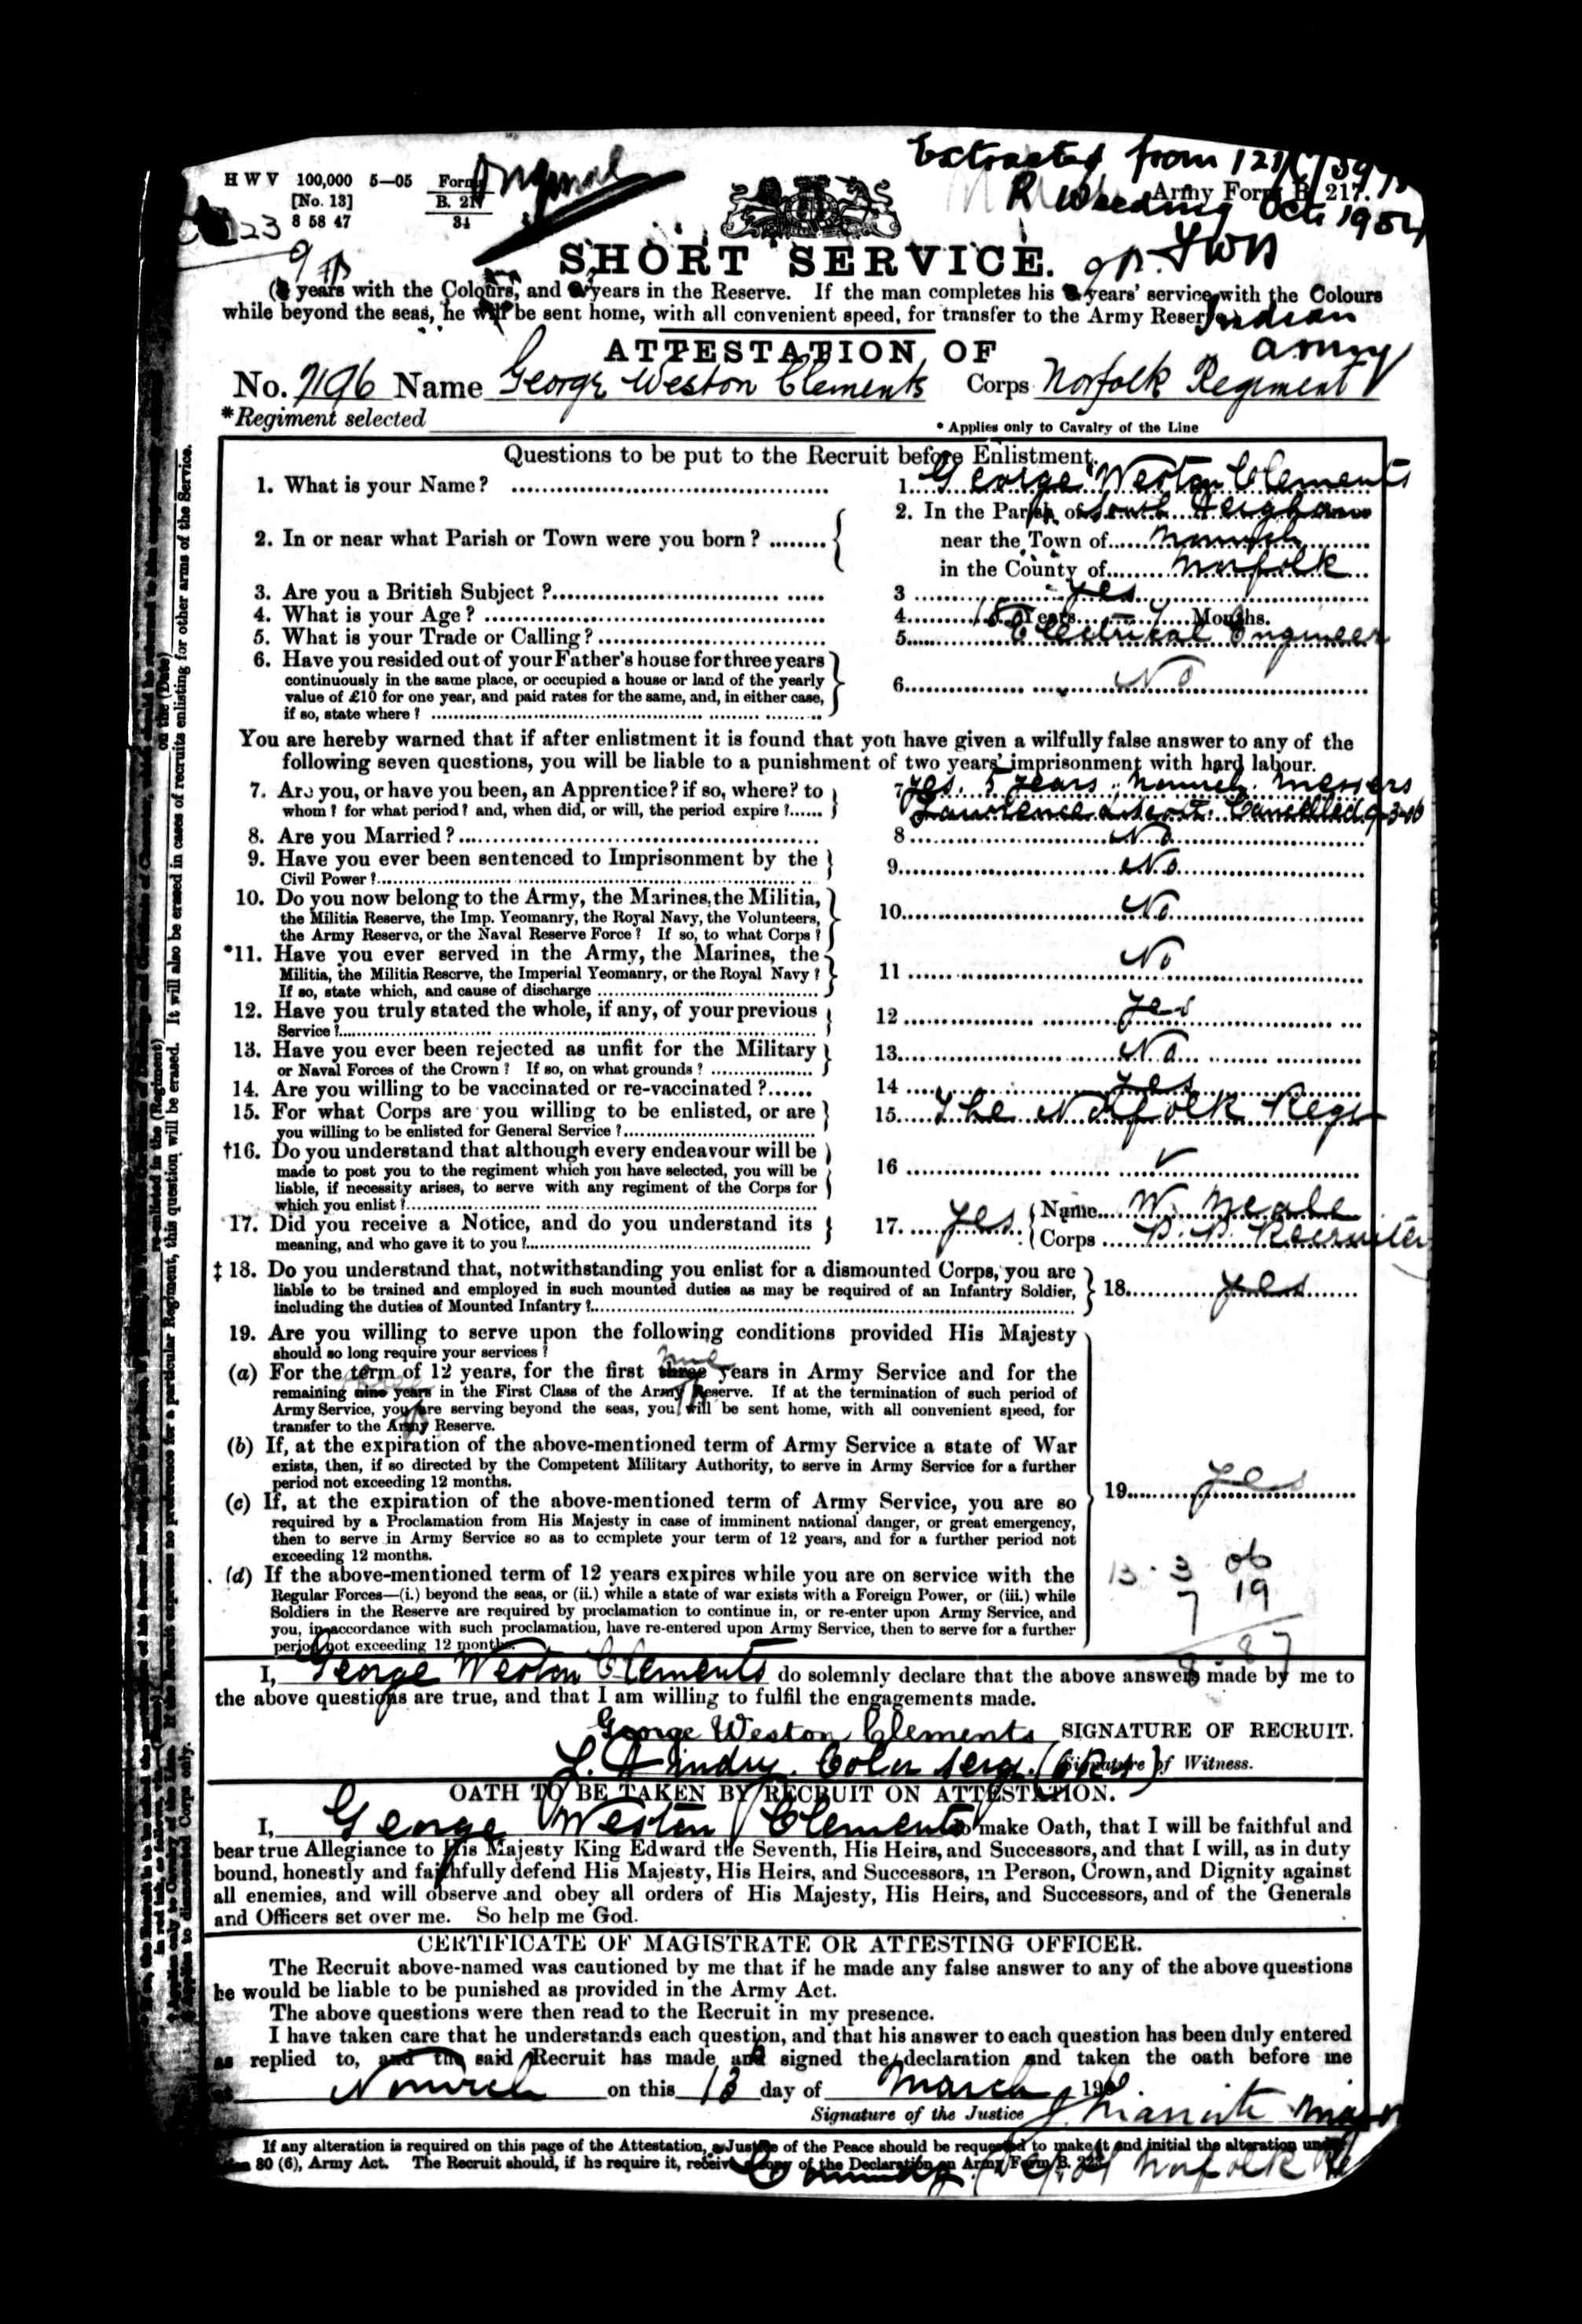 Extracted from 121/
H W V 100,000 5—05 Form Original
[No. 13] B. 217 Army Form B. 217.
8 58 47 34 R Weeding Oct 1954
23
SHORT SERVICE.
( years with the Colours, and years in the Reserve. If the man completes his years' service with the Colours
while beyond the seas, he will be sent home, with all convenient speed, for transfer to the Army Reserve.)
Indian
Army
ATTESTATION OF
No. 7196 Name George Weston Clements Corps Norfolk Regiment
*Regiment selected
* Applies only to Cavalry of the Line
Questions to be put to the Recruit before Enlistment.
1. What is your Name? 1. George Weston Clements
2. In or near what Parish or Town were you born? 2. In the Parish of South Heigham
near the Town of Norwich
in the County of Norfolk
3. Are you a British Subject? 3 Yes
4. What is your Age? 4. 18 Years 7 Months.
5. What is your Trade or Calling? 5. Electrical Engineer
6. Have you resided out of your Father's house for three years
continuously in the same place, or occupied a house or land of the yearly
value of £10 for one year, and paid rates for the same, and, in either case,
if so, state where? 6. No
You are hereby warned that if after enlistment it is found that you have given a wilfully false answer to any of the
following seven questions, you will be liable to a punishment of two years' imprisonment with hard labour.
7. Are you, or have you been, an Apprentice? if so, where? to 7 Yes. 5 Years, Norwich. Messers
whom? for what period? and, when did, or will, the period expire? Laurence Scott. Cancelled 9-3-06
8. Are you Married? 8 No
9. Have you ever been sentenced to Imprisonment by the
Civil Power? 9. No
10. Do you now belong to the Army, the Marines, the Militia,
the Militia Reserve, the Imp. Yeomanry, the Royal Navy, the Volunteers,
the Army Reserve, or the Naval Reserve Force? If so, to what Corps? 10. No
*11. Have you ever served in the Army, the Marines, the
Militia, the Militia Reserve, the Imperial Yeomanry, or the Royal Navy?
If so, state which, and cause of discharge 11 No
12. Have you truly stated the whole, if any, of your previous
Service? 12 Yes
13. Have you ever been rejected as unfit for the Military
or Naval Forces of the Crown? If so, on what grounds? 13. No
14. Are you willing to be vaccinated or re-vaccinated? 14 Yes
15. For what Corps are you willing to be enlisted, or are
you willing to be enlisted for General Service? 15. The Norfolk Regt
†16. Do you understand that although every endeavour will be
made to post you to the regiment which you have selected, you will be
liable, if necessity arises, to serve with any regiment of the Corps for
which you enlist? 16
17. Did you receive a Notice, and do you understand its
meaning, and who gave it to you? 17. Yes Name W. Meale
Corps Recruiter
‡ 18. Do you understand that, notwithstanding you enlist for a dismounted Corps, you are
liable to be trained and employed in such mounted duties as may be required of an Infantry Soldier,
including the duties of Mounted Infantry? 18. Yes
19. Are you willing to serve upon the following conditions provided His Majesty
should so long require your services?
(a) For the term of 12 years, for the first three nine years in Army Service and for the
remaining nine years in the First Class of the Army Reserve. If at the termination of such period of
Army Service, you are serving beyond the seas, you will be sent home, with all convenient speed, for
transfer to the Army Reserve.
(b) If, at the expiration of the above-mentioned term of Army Service a state of War
exists, then, if so directed by the Competent Military Authority, to serve in Army Service for a further
period not exceeding 12 months.
(c) If, at the expiration of the above-mentioned term of Army Service, you are so
required by a Proclamation from His Majesty in case of imminent national danger, or great emergency,
then to serve in Army Service so as to complete your term of 12 years, and for a further period not
exceeding 12 months.
19. Yes
(d) If the above-mentioned term of 12 years expires while you are on service with the
Regular Forces—(i.) beyond the seas, or (ii.) while a state of war exists with a Foreign Power, or (iii.) while
Soldiers in the Reserve are required by proclamation to continue in, or re-enter upon Army Service, and
you, in accordance with such proclamation, have re-entered upon Army Service, then to serve for a further
period not exceeding 12 months.
13 · 3 06
7 19
8 87
I, George Weston Clements do solemnly declare that the above answers made by me to
the above questions are true, and that I am willing to fulfil the engagements made.
George Weston Clements SIGNATURE OF RECRUIT.
Colr Sergt. Signature of Witness.
OATH TO BE TAKEN BY RECRUIT ON ATTESTATION.
I, George Weston Clements do make Oath, that I will be faithful and
bear true Allegiance to His Majesty King Edward the Seventh, His Heirs, and Successors, and that I will, as in duty
bound, honestly and faithfully defend His Majesty, His Heirs, and Successors, in Person, Crown, and Dignity against
all enemies, and will observe and obey all orders of His Majesty, His Heirs, and Successors, and of the Generals
and Officers set over me. So help me God.
CERTIFICATE OF MAGISTRATE OR ATTESTING OFFICER.
The Recruit above-named was cautioned by me that if he made any false answer to any of the above questions
he would be liable to be punished as provided in the Army Act.
The above questions were then read to the Recruit in my presence.
I have taken care that he understands each question, and that his answer to each question has been duly entered
as replied to, and the said Recruit has made and signed the declaration and taken the oath before me
at Norwich on this 13 day of March 1906.
Signature of the Justice Major
If any alteration is required on this page of the Attestation, a Justice of the Peace should be requested to make it and initial the alteration under
80 (6), Army Act. The Recruit should, if he require it, receive a copy of the Declaration on Army Form B.
Norfolk